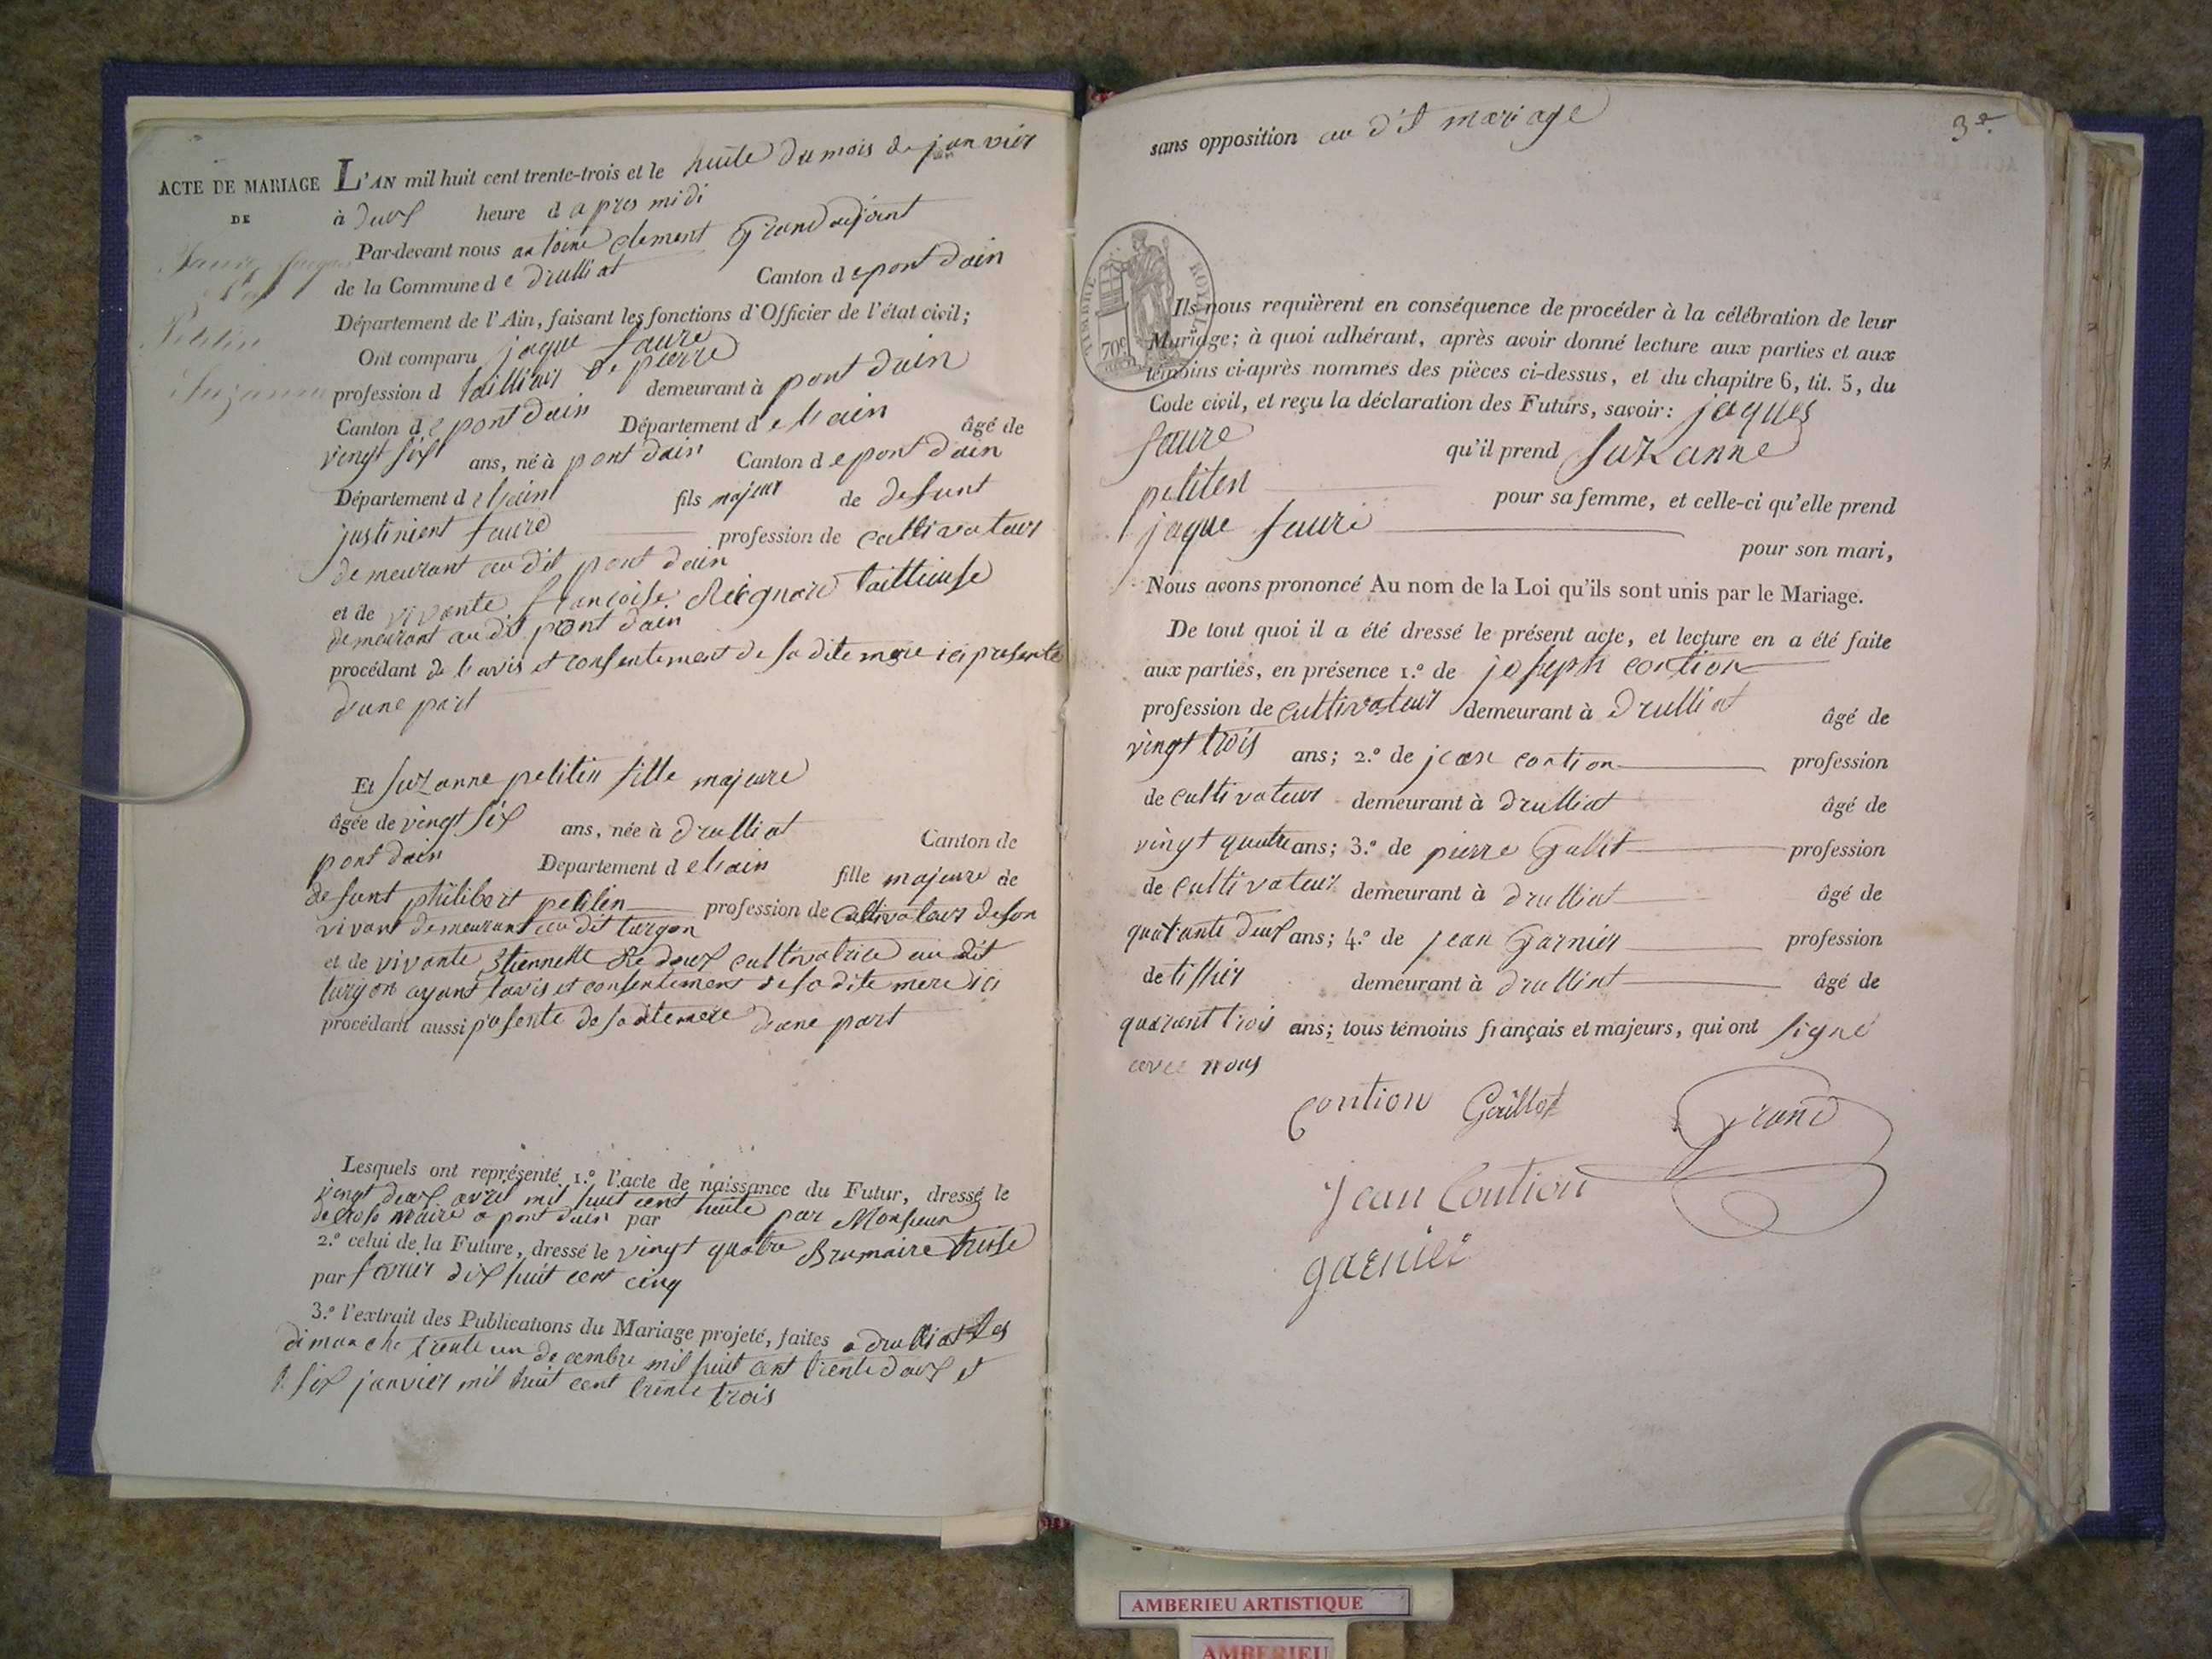 ACTE DE MARIAGE
DE
L'AN mil huit cent trente-trois et le huite du mois de janvier
à deux heure d apres midi
Par-devant nous antoine clement Grand adjoint
de la Commune de drulliat Canton de pont dain
Département de l'Ain, faisant les fonctions d'Officier de l'état civil;
Ont comparu jaque faure
de pierre
profession d tailleur demeurant à pont dain
Canton de pont dain Département de lain âgé de
vingt six ans, né à pont dain Canton de pont dain
Département de lain fils majeur de defunt
justinient faure profession de cultivateur
demeurant au dit pont dain
et de vivante francoise tailleuse
demeurant au dit pont dain
procédant de lavis et consentement de sa dite mere ici presente
dune part
Et suzanne petitin fille majeure
âgée de vingt six ans, née à drulliat Canton de
pont dain Departement de lain fille majeure de
defunt philibert petitin profession de cultivateur de son
vivant demeurant au dit turgon
et de vivante Etiennette cultivatrice au dit
turgon ayant lavis et consentement de sa dite mere ici
procédant aussi presente de sa dite mere dune part
Lesquels ont représenté 1.º l'acte de naissance du Futur, dressé le
vingt deux avril mil huit cent huite par Monsieur
maire a pont dain par
2.º celui de la Future, dressé le vingt quatre Brumaire treise
par fevrier dix huit cent cinq
3.º l'extrait des Publications du Mariage projeté, faites a drulliat les
dimanche trente un decembre mil huit cent trente deux et
le six janvier mil huit cent trente trois
3e.
sans opposition au dit mariage
TIMBRE ROYAL
70c
Ils nous requièrent en conséquence de procéder à la célébration de leur
Mariage; à quoi adhérant, après avoir donné lecture aux parties et aux
témoins ci-après nommés des pièces ci-dessus, et du chapitre 6, tit. 5, du
Code civil, et reçu la déclaration des Futurs, savoir: jaques
faure qu'il prend suzanne
petiten pour sa femme, et celle-ci qu'elle prend
jaque faure pour son mari,
Nous avons prononcé Au nom de la Loi qu'ils sont unis par le Mariage.
De tout quoi il a été dressé le présent acte, et lecture en a été faite
aux parties, en présence 1.º de joseph contion
profession de cultivateur demeurant à drulliat âgé de
vingt trois ans; 2.º de jean contion profession
de cultivateur demeurant à drulliat âgé de
vingt quatre ans; 3.º de pierre Gallit profession
de cultivateur demeurant à drulliat âgé de
quarante deux ans; 4.º de jean Garnier profession
de tissier demeurant à drulliat âgé de
quarant trois ans; tous témoins français et majeurs, qui ont signé
avec nous
Contion Gaillot Grand
Jean Contion
garnier
AMBERIEU ARTISTIQUE
AMBERIEU